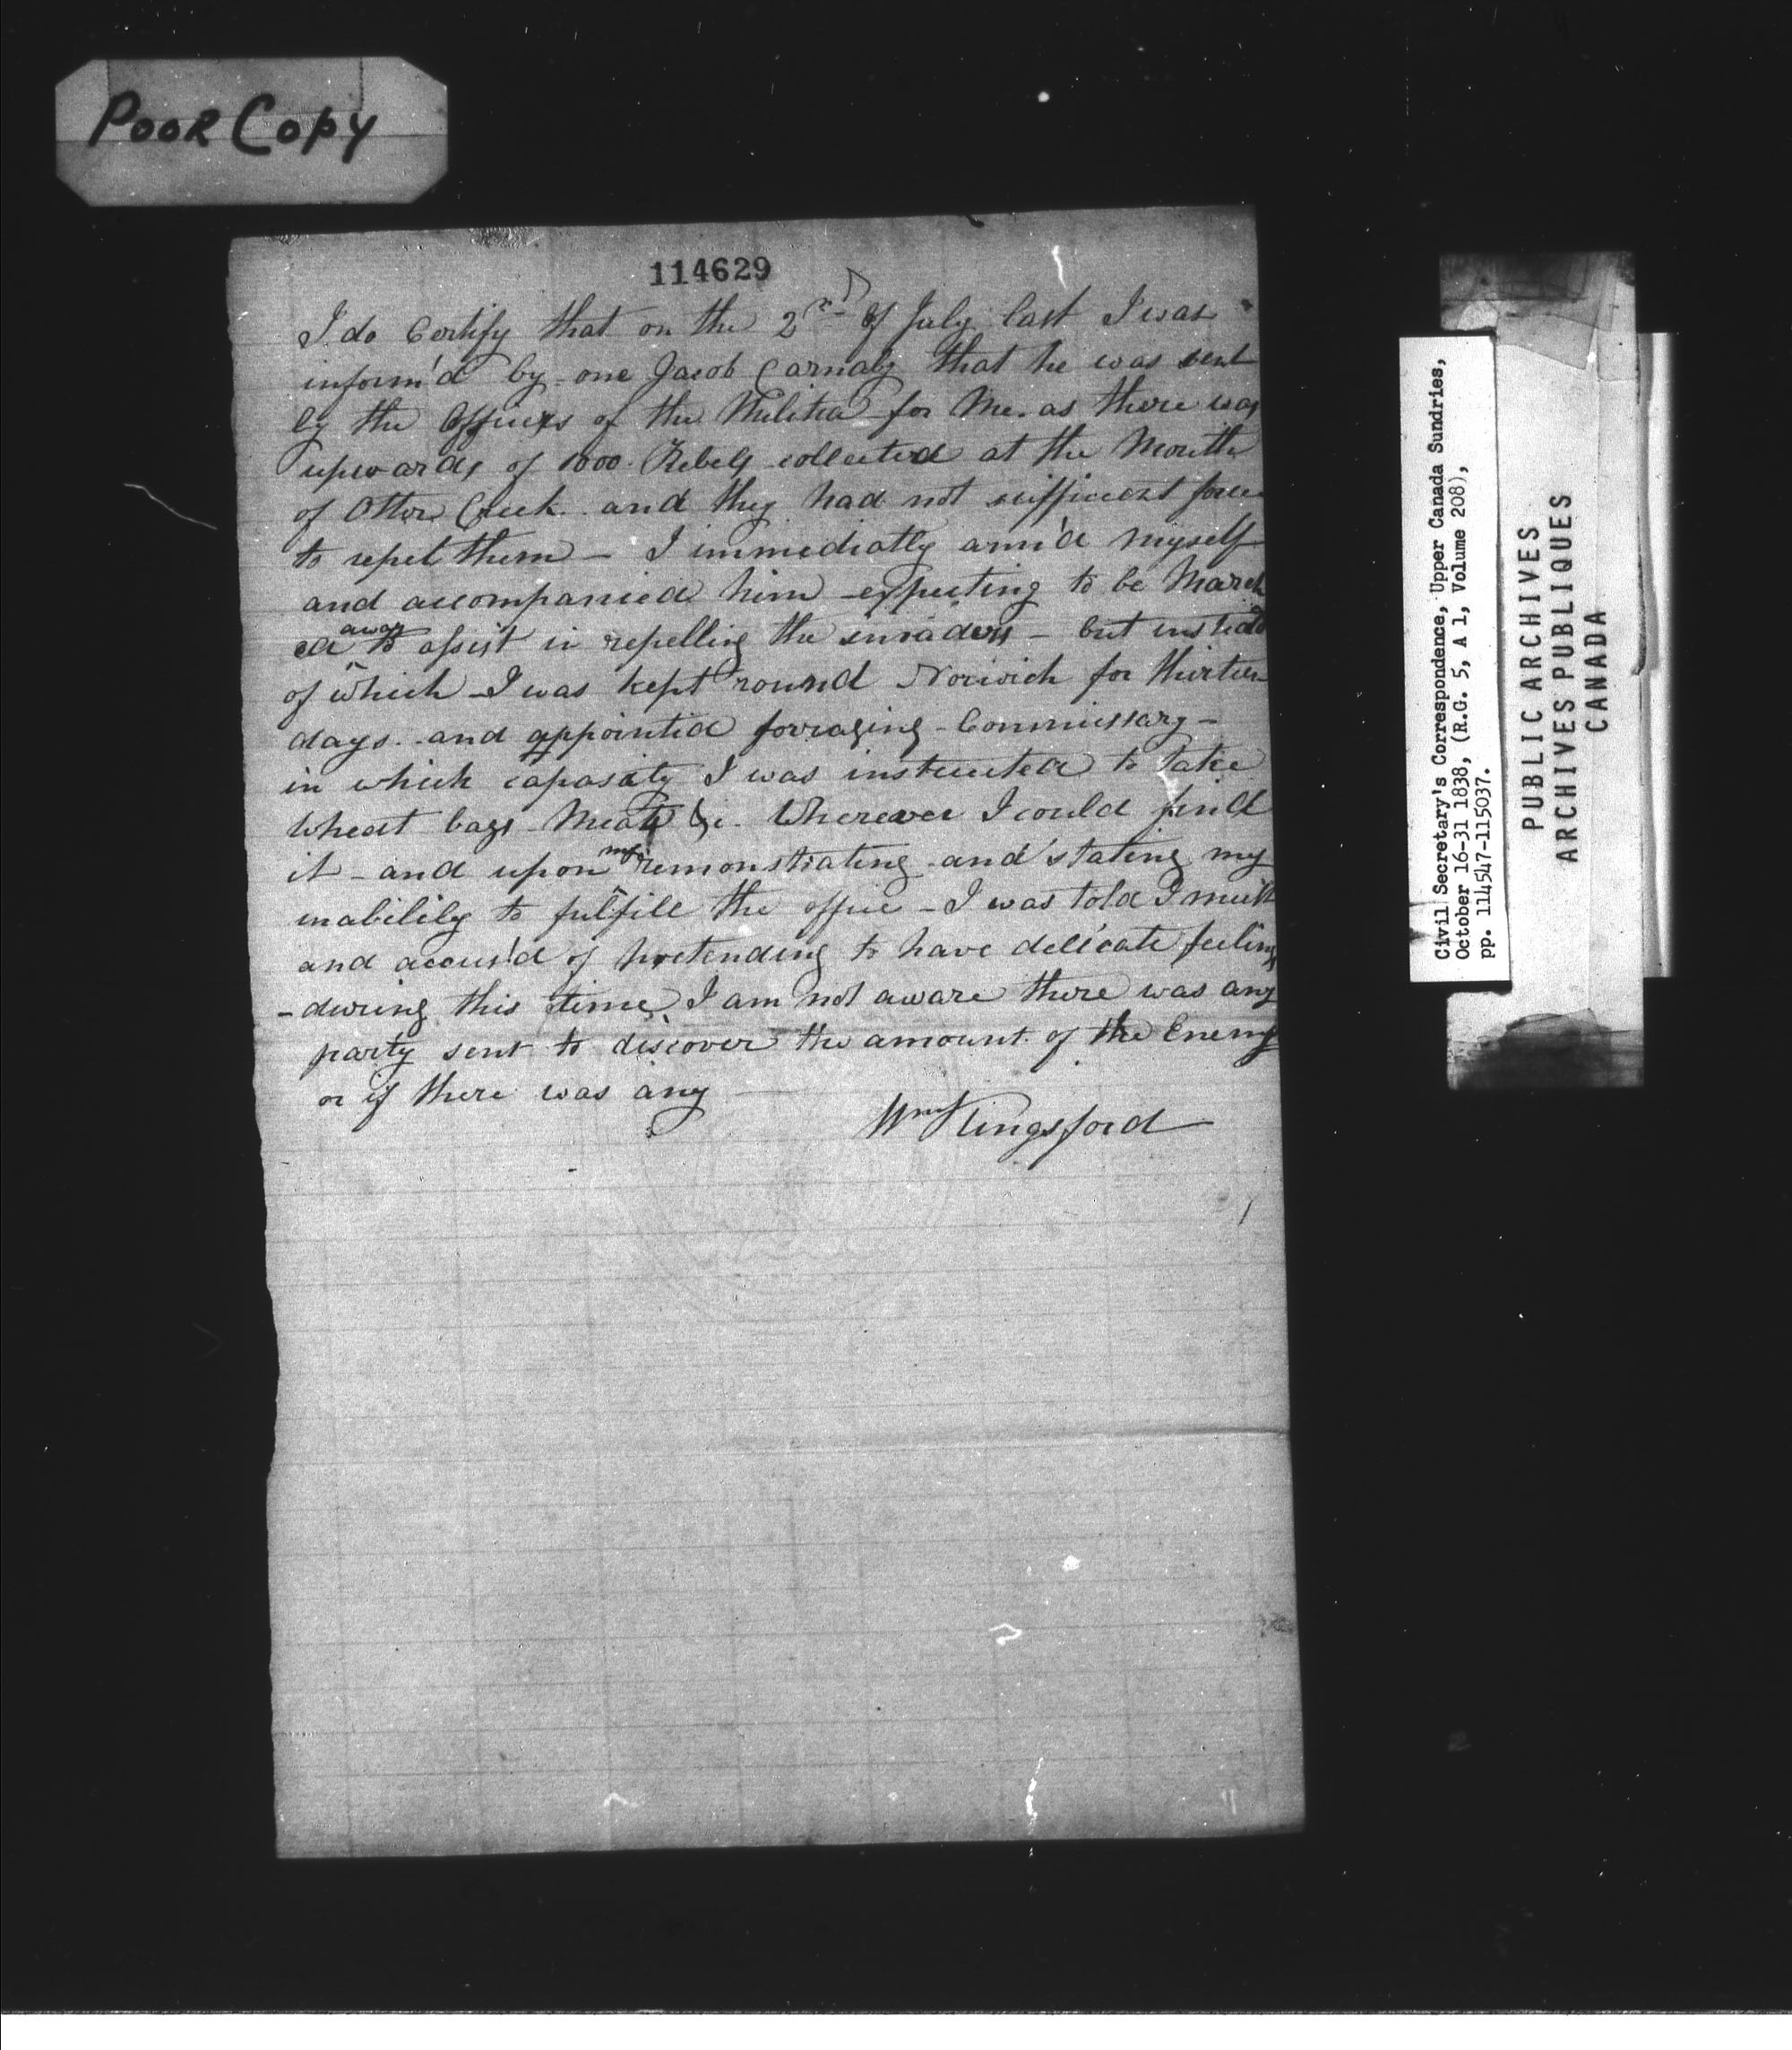 POOR COPY
114629
I do Certify that on the 2nd of July last I was
inform'd by one Jacob Carnaby that he was sent
by the Officers of the Militia for Me. as there was
upwards of 1000 Rebels collected at the Mouth
of Otter Creek and they had not sufficient force
to repel them - I immediatly arm'd myself
and accompanied him expecting to be March
ed away to assist in repelling the invaders - but instead
of which I was kept round Norwich for thirteen
days and appointed forraging Commissary -
in which capasity I was instructed to take
Wheat bags Meat &c. Wherever I could find
it - and upon my remonstrating and stating my
inability to fulfill the office - I was told I must
and accus'd of pretending to have delicate feelings
- during this time I am not aware there was any
party sent to discover the amount of the Enemy
or if there was any
Wm Kingsford
Civil Secretary's Correspondence, Upper Canada Sundries,
October 16-31 1838, (R.G. 5, A 1, Volume 208),
pp. 114547-115037.
PUBLIC ARCHIVES
ARCHIVES PUBLIQUES
CANADA